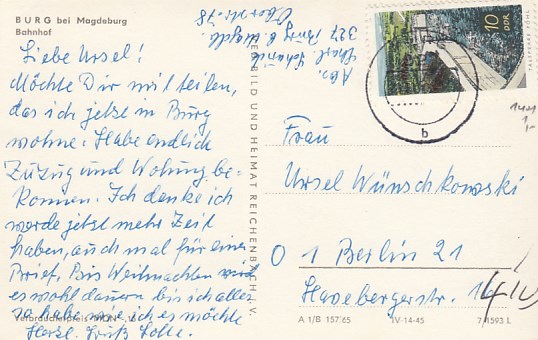 BURG bei Magdeburg
Bahnhof
Liebe Ursel!
Möchte Dir mitteilen,
das ich jetzt in Burg
wohne. Habe endlich
Zuzug und Wohnung be-
kommen. Ich denke ich
werde jetzt mehr Zeit
haben, auch mal für einen
Brief. Bis Weihnachten wird
es wohl dauern bis ich alles
so habe wie ich es möchte
Herzl. Grüß
Verbraucherpreis MDN
Abs.
327 Burg b. Magdeb.
BILD UND HEIMAT REICHENBACH I. V.
10
DDR
b
Frau
Ursel Wünschkowski
1 Berlin 21
A 1/B 157/65 IV-14-45 7 1593 L